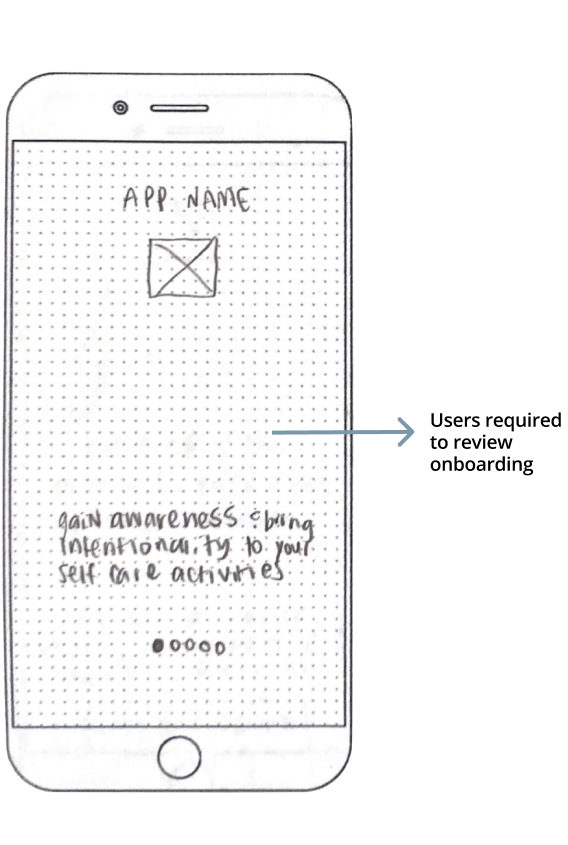 APP NAME
gain awareness & bring
intentionality to your
self care activities
Users required
to review
onboarding